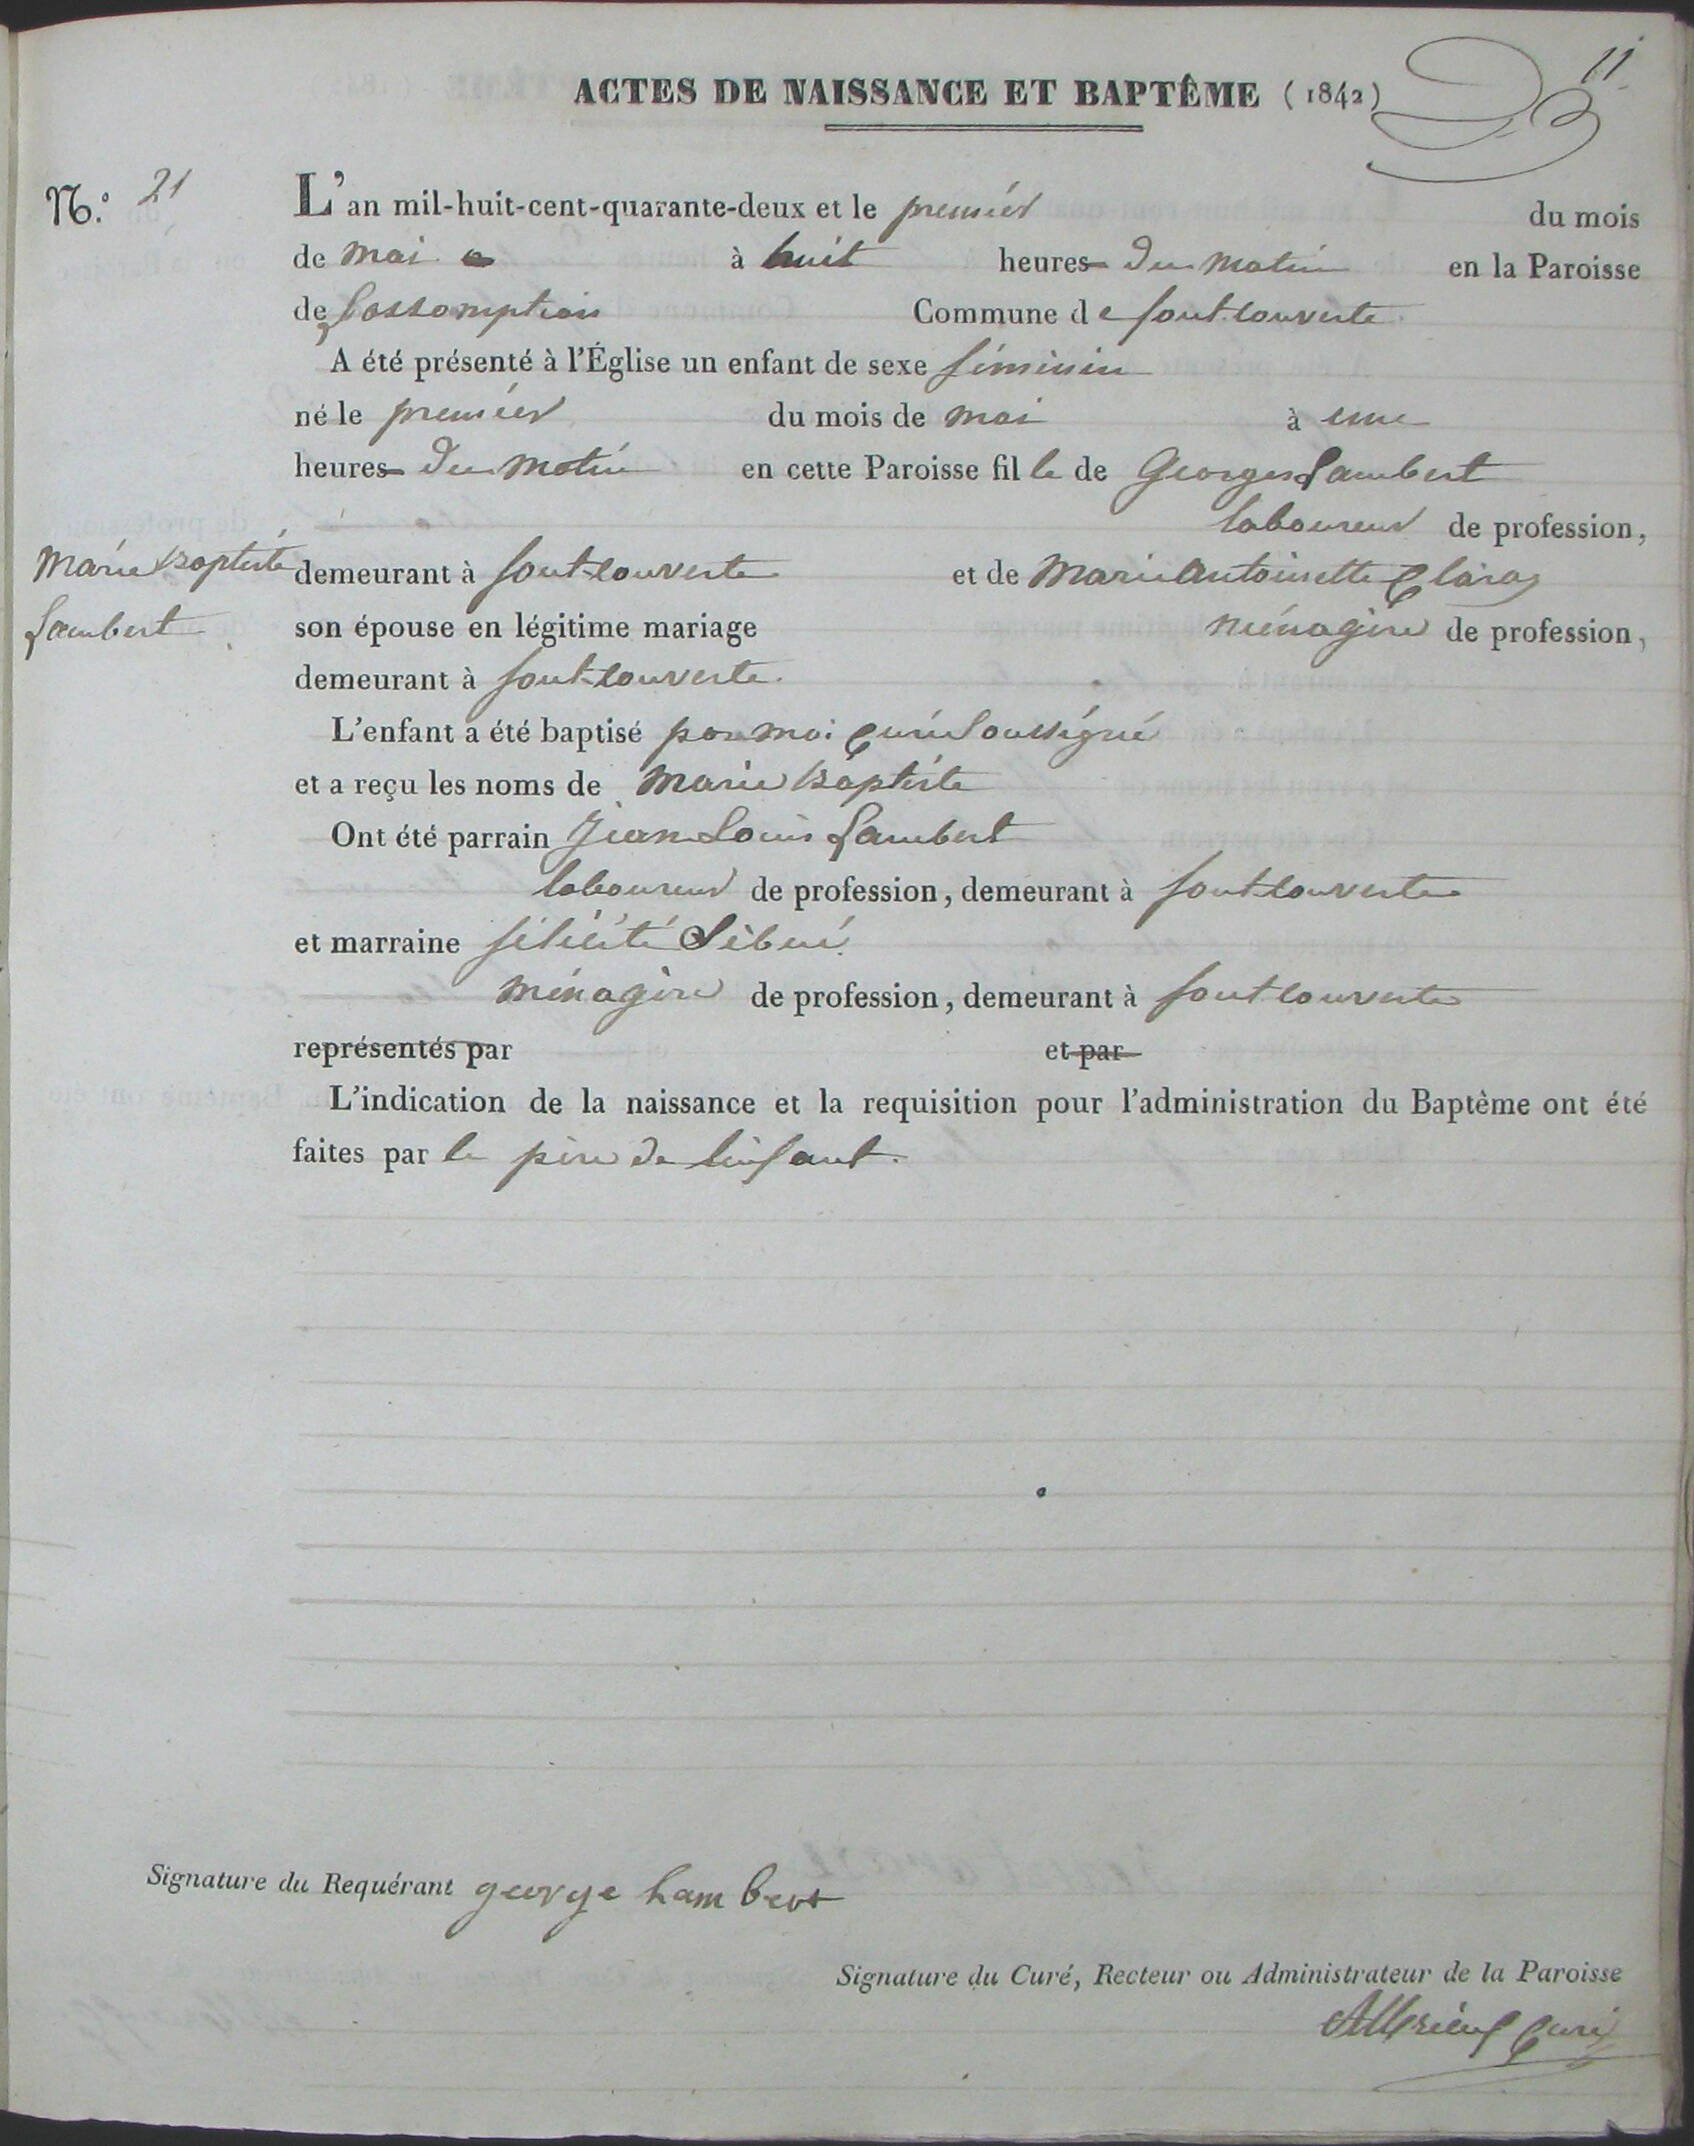 11
ACTES DE NAISSANCE ET BAPTÊME (1842)
N.º 21
L'an mil-huit-cent-quarante-deux et le premier du mois
de mai à huit heures du matin en la Paroisse
de Lassomption Commune de fontcouverte
A été présenté à l'Église un enfant de sexe féminin
né le premier du mois de mai à une
heures du matin en cette Paroisse fille de Georges Lambert
laboureur de profession,
Marie Baptiste
Lambert
demeurant à fontcouverte et de Marie Antoinette Claraz
son épouse en légitime mariage ménagère de profession,
demeurant à fontcouverte.
L'enfant a été baptisé par moi curé soussigné
et a reçu les noms de Marie Baptiste
Ont été parrain Jean Louis Lambert
laboureur de profession, demeurant à fontcouverte
et marraine félicité Sibué
ménagère de profession, demeurant à fontcouverte
représentés par et par
L'indication de la naissance et la requisition pour l'administration du Baptème ont été
faites par le père de l'enfant.
Signature du Requérant george lambert
Signature du Curé, Recteur ou Administrateur de la Paroisse
curé